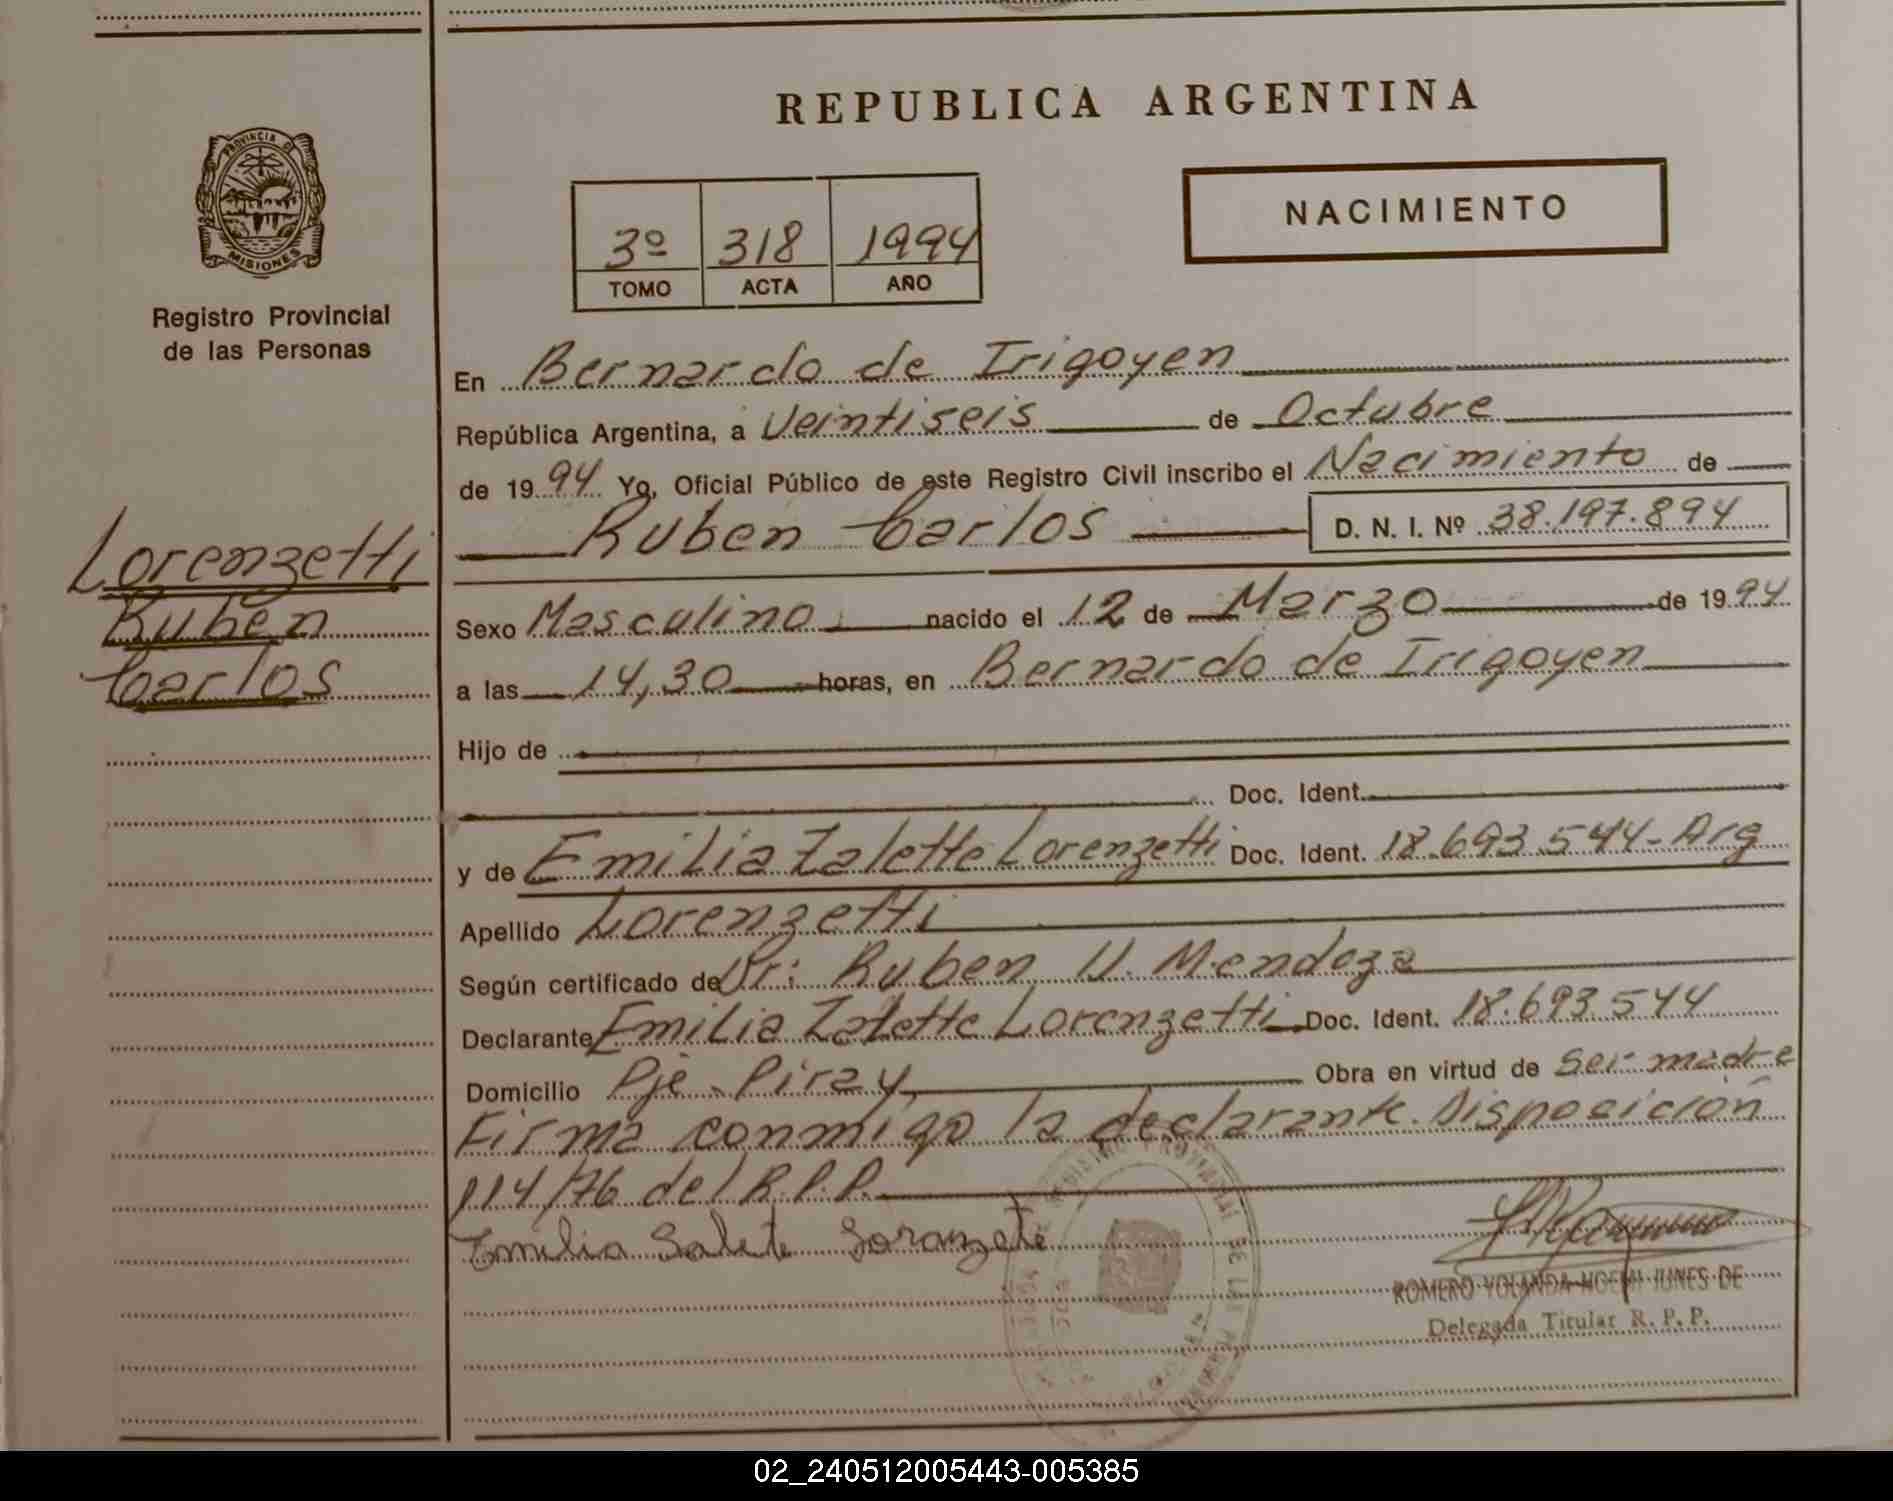 REPUBLICA ARGENTINA
PROVINCIA DE
MISIONES
Registro Provincial
de las Personas
NACIMIENTO
3º 318 1994
TOMO ACTA AÑO
En Bernardo de Irigoyen
República Argentina, a Veintiseis de Octubre
de 1994 Yo, Oficial Público de este Registro Civil inscribo el Nacimiento de
Ruben Carlos D. N. I. Nº 38.197.894
Lorenzetti
Ruben
Carlos
Sexo Masculino nacido el 12 de Marzo de 1994
a las 14,30 horas, en Bernardo de Irigoyen
Hijo de
Doc. Ident.
y de Emilia Zalette Lorenzetti Doc. Ident. 18.693.544-Arg
Apellido Lorenzetti
Según certificado de Dr: Ruben U. Mendoza
Declarante Emilia Zalette Lorenzetti Doc. Ident. 18.693.544
Domicilio Pje. Piray Obra en virtud de Ser madre
Firma conmigo la declarante. Disposición
114/76 del R.P.P.
Emilia Salete Loranzete
ROMERO YOLANDA NOEMI JUNES DE
Delegada Titular R. P. P.
02_240512005443-005385